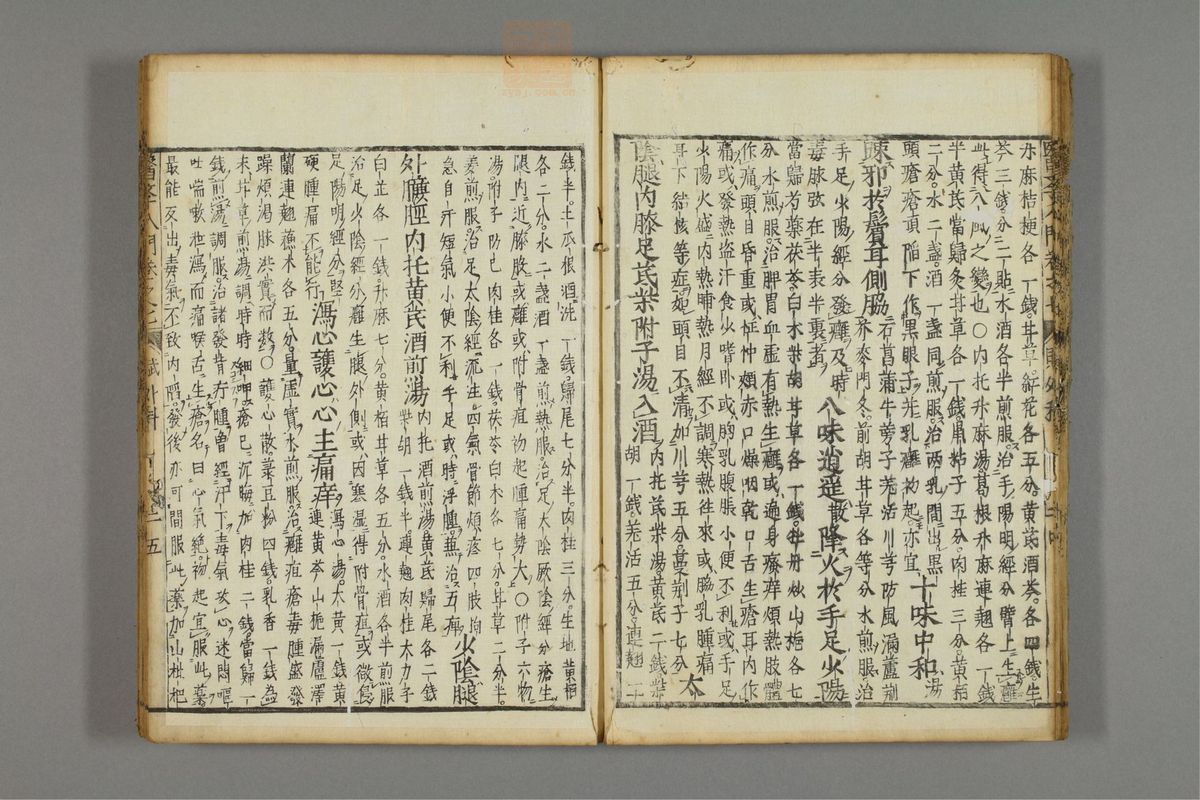 升麻桔梗各一錢甘草紅花各五分黃芪酒芩各四錢牛
芩三錢分二貼水酒各半煎服治手陽明經分臂上生癰
此得八風之變也○內托升麻湯葛根升麻連翹各一錢
半黃芪當歸炙甘草各一錢鼠粘子五分肉桂三分黃栢
二分水二盞酒一盞同煎服治兩乳間出黑
頭瘡瘡頂陷下作黑眼子并乳癰初起亦宜十味中和湯
疎邪於鬢耳側脇石菖蒲牛蒡子羌活川芎防風漏蘆荊
芥麥門冬前胡甘草各等分水煎服治
手足少陽經分發癰及時
毒脉弦在半表半裏者八味逍遙散降火於手足少陽
當歸芍藥茯苓白朮柴胡甘草各一錢牡丹炒山梔各七
分水煎服治脾胃血虛有熱生癰或遍身瘙痒煩熱肢體
作痛頭目昏重或怔忡頰赤口燥咽乾口舌生瘡耳內作
痛或發熱盜汗食少嗜臥或胸乳腹脹小便不利或手足
少陽火盛內熱晡熱月經不調寒熱往來或脇乳腫痛
耳下結核等症如頭目不清加川芎五分蔓荊子七分太
陰腿內膝足芪柴附子湯入酒內托芪柴湯黃芪二錢柴
胡一錢羌活五分連翹二
錢半土瓜根酒洗一錢歸尾七分半肉桂三分生地黃栢
各二分水二盞酒一盞煎熱服治足太陰厥陰經分瘡生
腿內近膝股或癰或附骨疽初起腫痛勢大○附子六物
湯附子防己肉桂各一錢茯苓白朮各七分甘草二分半
姜煎服治足太陰經流注四氣骨節煩疼四肢拘
急自汗短氣小便不利手足或時浮腫兼治五痺少陰腿
外膁脛內托黃芪酒煎湯內托酒煎湯黃芪歸尾各二錢
柴胡一錢半連翹肉桂大力子
白芷各一錢升麻七分黃栢甘草各五分水酒各半煎服
治足少陰經分癰生腿外側或因寒濕得附骨疽或微侵
足陽明經分堅
硬腫痛不能行瀉心護心心主痛痒瀉心湯大黃一錢黃
連黃芩山梔漏蘆澤
蘭連翹蘇木各五分量虛實水煎服治癰疽瘡毒腫盛發
躁煩渴脉洪實而數○護心散菉豆粉四錢乳香一錢為
末甘草煎湯調時時細呷瘡已沉晦加肉桂二錢當歸一
錢煎湯調服治諸發背疔腫曾經汗下毒氣攻心迷悶嘔
吐喘嗽泄瀉而痛喉舌生瘡名曰心氣絕初起宜服此藥
最能反出毒氣不致內陷發後亦可間服此藥加山梔杷